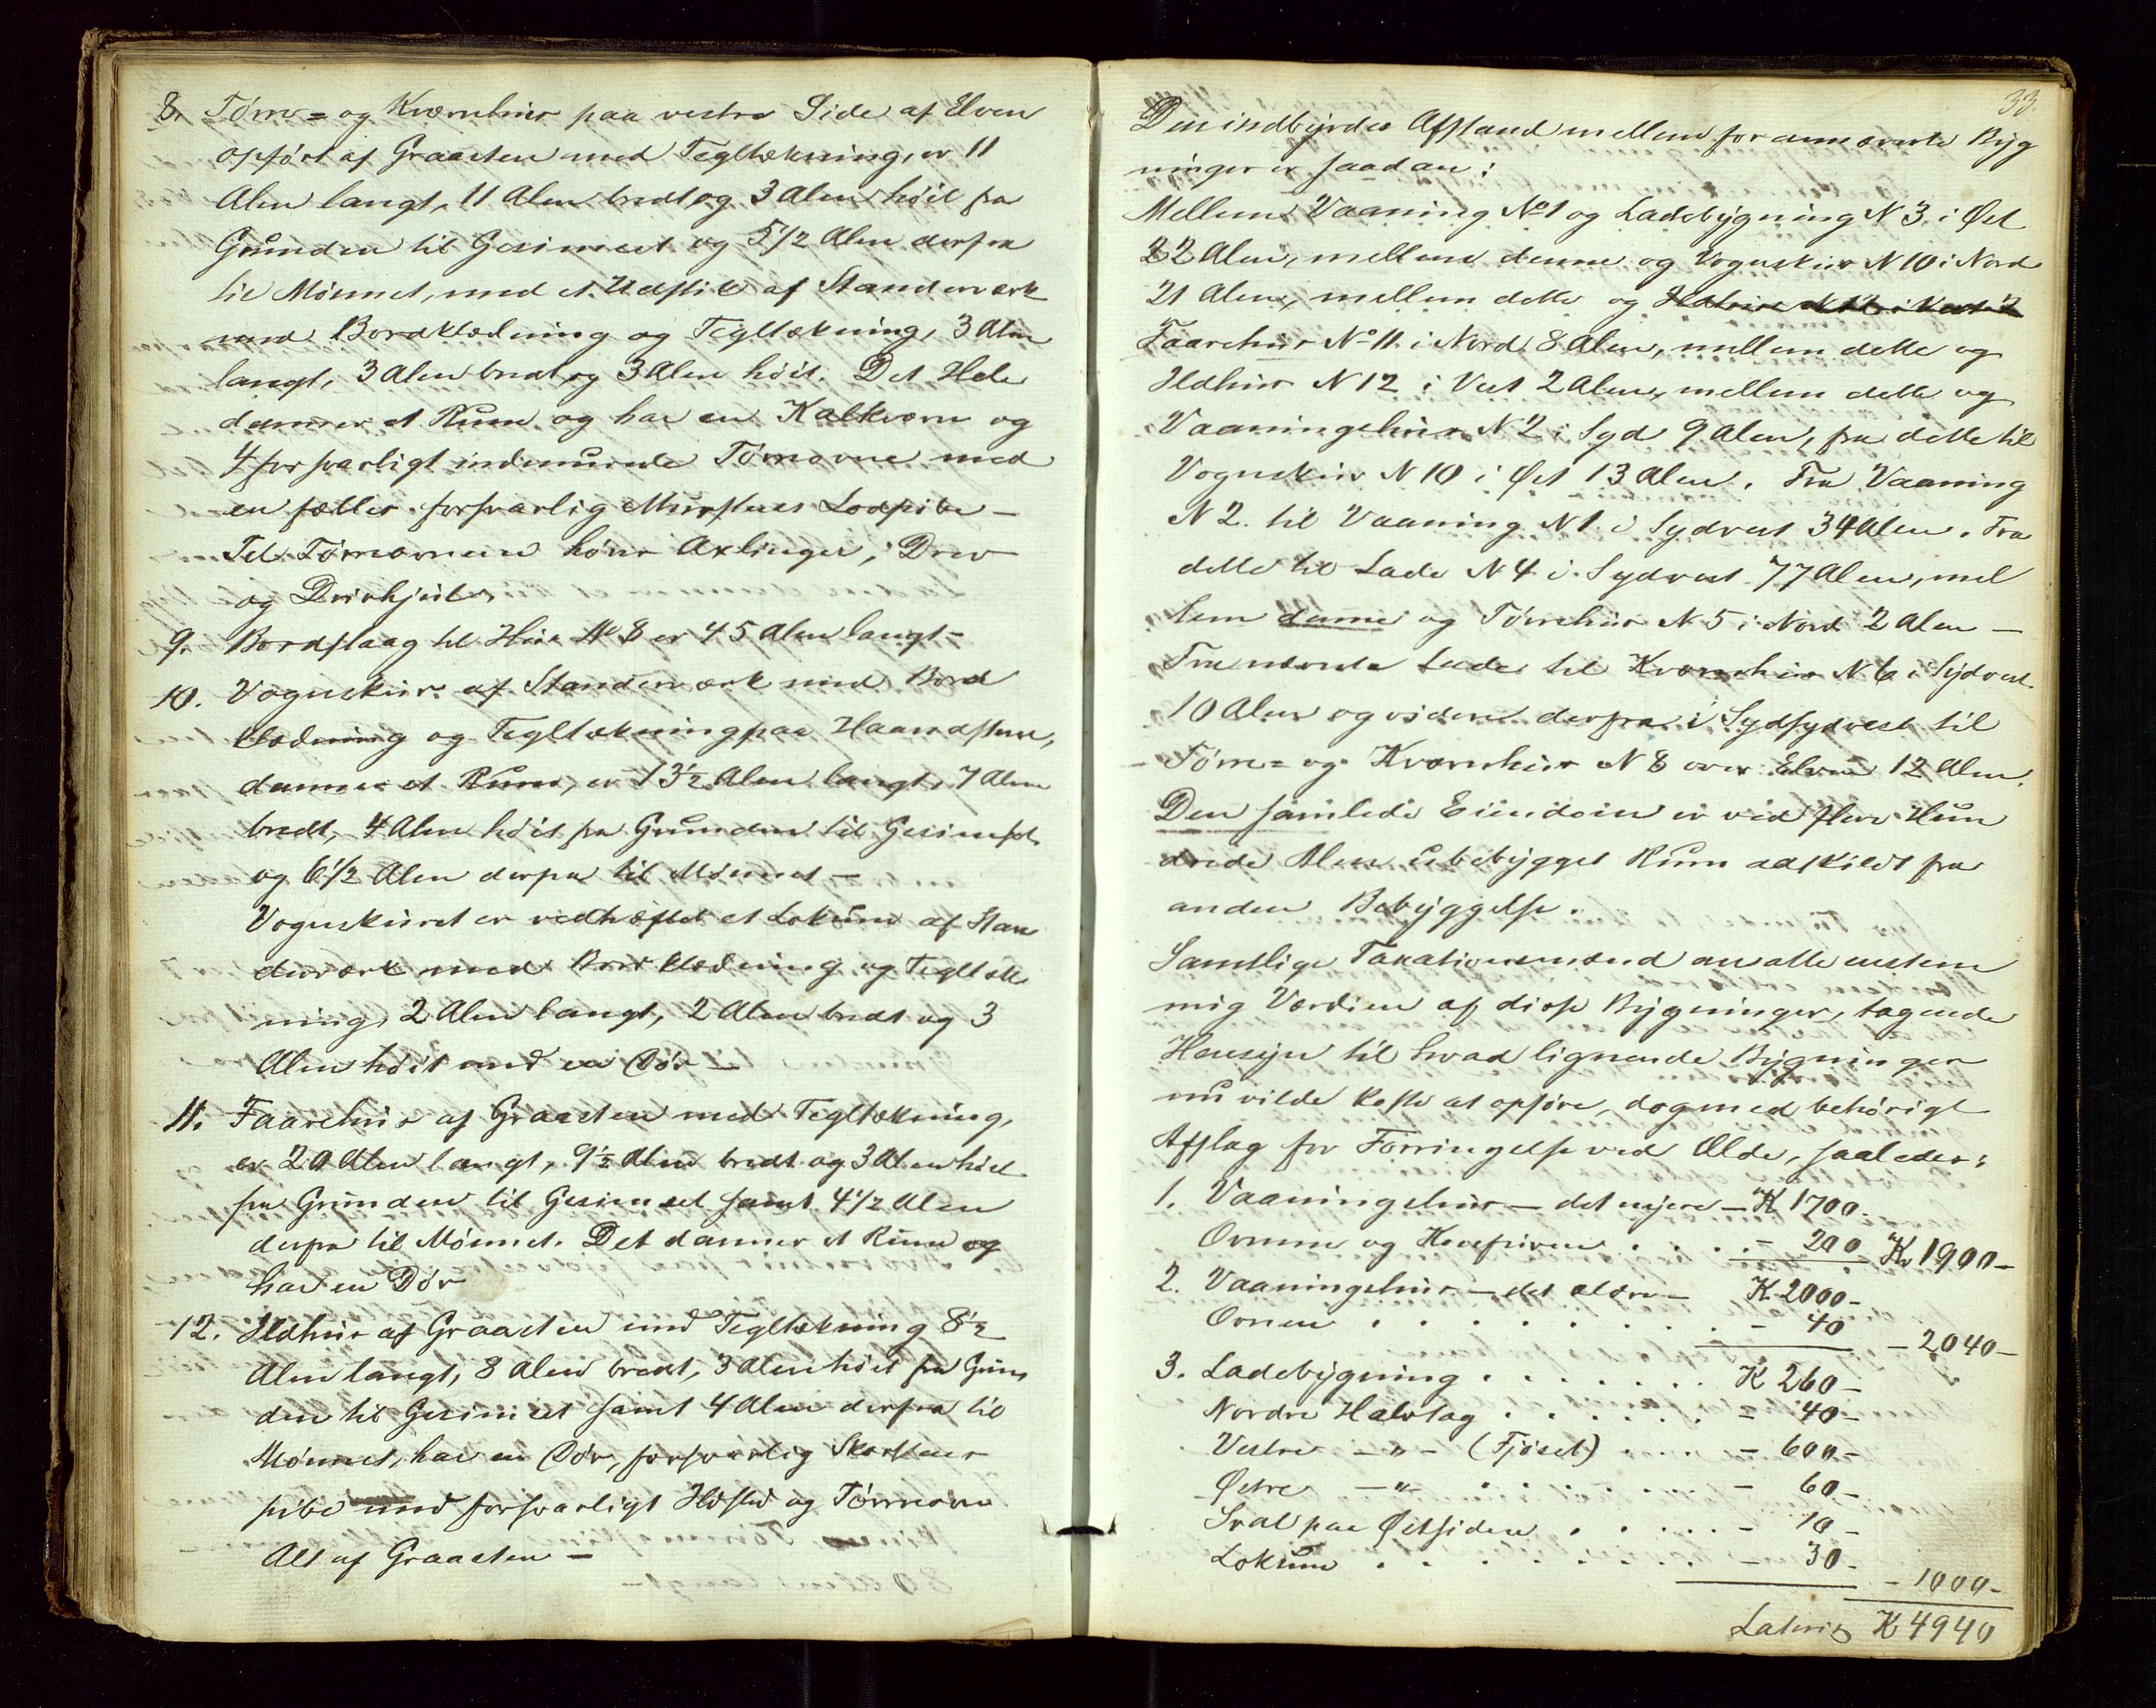 8. Tørre= og Kværnhus paa vestre Side af Elven
opført af Graasten med Tegltækning, er 11
Alen langt, 11 Alen bredt og 3 Alen høit fra
Grunden til Gesimset og 5 1/2 Alen derfra
til Mønnet, med et Udstik af Standerværk
med Bordklædning og Tegltækning, 3 Alen
langt, 3 Alen bredt og 3 Alen høit. Det Hele
danner et Rum og har en Kalkværn og
4 forsvarligt indmurede Tørreovne med
en fælles forsvarlig Murstens Lodpibe –
Til Tørreovnene hører Axlinger, Drev
og Drivhjul.
9. Bordslaag til Hus No 8 er 45 Alen langt –
10. Vognskur af Standerværk med Bord
klædning og Tegltækning paa Haandstene,
danner et Rum, er 13 1/2 Alen langt, 7 Alen
bredt, 4 Alen høit fra Grunden til Gesimset
og 6 1/2 Alen derfra til Mønnet –
Vognskuret er vedhæftet et Lokum af Stan
derværk med Bordklædning og Tegltæk
ning, 2 Alen langt, 2 Alen bredt og 3
Alen høit med en Dør –
11. Faarehus af Graasten med Tegltækning,
er 20 Alen langt, 9 1/2 Alen bredt og 3 Alen høit
fra Grunden til Gesimset samt 4 1/2 Alen
derfra til Mønnet. Det danner et Rum og
har en Dør
12. Ildhus af Graasten med Tegltækning 8 1/2
Alen langt, 8 Alen bredt, 3 Alen høit fra Grun
den til Gesimset samt 4 Alen derfra til
Mønnet, har en Dør, forsvarlig Skorstens
pibe med forsvarligt Ildsted og Tørreovn
Alt af Graasten –
33.
Den indbyrdes Afstand mellem foran nævnte Byg
ninger er saadan:
Mellem Vaaning No 1 og Ladebygning N 3 i Øst
22 Alen, mellem denne og Vognskur N 10 i Nord
21 Alen, mellem dette og Ildhus N 12 i Vest 2
Faarehus No 11 i Nord 8 Alen, mellem dette og
Ildhus N 12 i Vest 2 Alen, mellem dette og
Vaaningshus N 2 i Syd 9 Alen, fra dette til
Vognskur N 10 i Øst 13 Alen. Fra Vaaning
N 2 til Vaaning N 1 i Sydvest 34 Alen. Fra
dette til Lade N 4 i Sydvest 77 Alen, mel
lem denne og Tørrehus N 5 i Nord 2 Alen –
Fra nævnte Lade til Kværnhus N 6 i Sydvest
10 Alen og videre derfra i Sydsydvest til
Tørre= og Kværnhus N 8 over Elven 12 Alen.
Den samlede Eiendom er ved flere Hun
drede Alen ubebygget Rum adskildt fra
anden Bebyggelse.
Samtlige Taxationsmænd ansatte eenstem
mig Værdien af disse Bygninger, tagende
Hensyn til hvad lignende Bygninger
nu vilde koste at opføre, dog med behørigt
Afslag for Forringelse ved Ælde, saaledes:
1. Vaaningshus – det nyere – K 1700.
Ovnene og Komfuren . . . . . – 200 Kr 1900 –
2. Vaaningshus – det ældre – K 2000 –
Ovnen . . . . . . . . . – 40
– 2040 –
3. Ladebygning . . . . . . . K 260 –
Nordre Halvtag . . . . . . – 40 –
Vestre – " – (Fjøset) . . . . – 600 –
Østre – " – . . . . . . . – 60 –
Sval paa Østsiden . . . . . – 10 –
Lokum . . . . . . . . . – 30 –
– 1000 –
Lateris K 4940